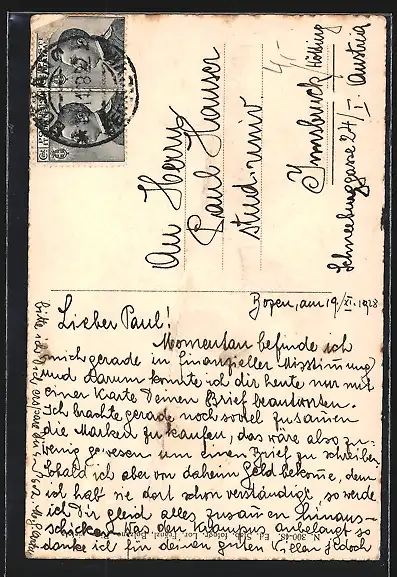 An Herrn
Paul Hauser
stud. univ
Innsbruck Hötting
Schneeburggasse 24/I
Austria
Bozen, am 19/XI. 1928
Lieber Paul!
Momentan befinde ich
mich gerade in finanzieller Misstimmung
und darum konnte ich dir heute nur mit
einer Karte deinen Brief beantworten.
Ich brachte gerade noch soviel zusamen
die Marken zu kaufen, das wäre also zu
wenig gewesen um einen Brief zu schreiben.
Sobald ich aber von daheim Geld bekome, denn
ich hab sie dort schon verständigt, so werde
ich dir gleich alles zusamen hinaus-
schicken. Was den Klampus anbelangt so
danke ich für deinen guten Willen jedoch
bitte ich dich,